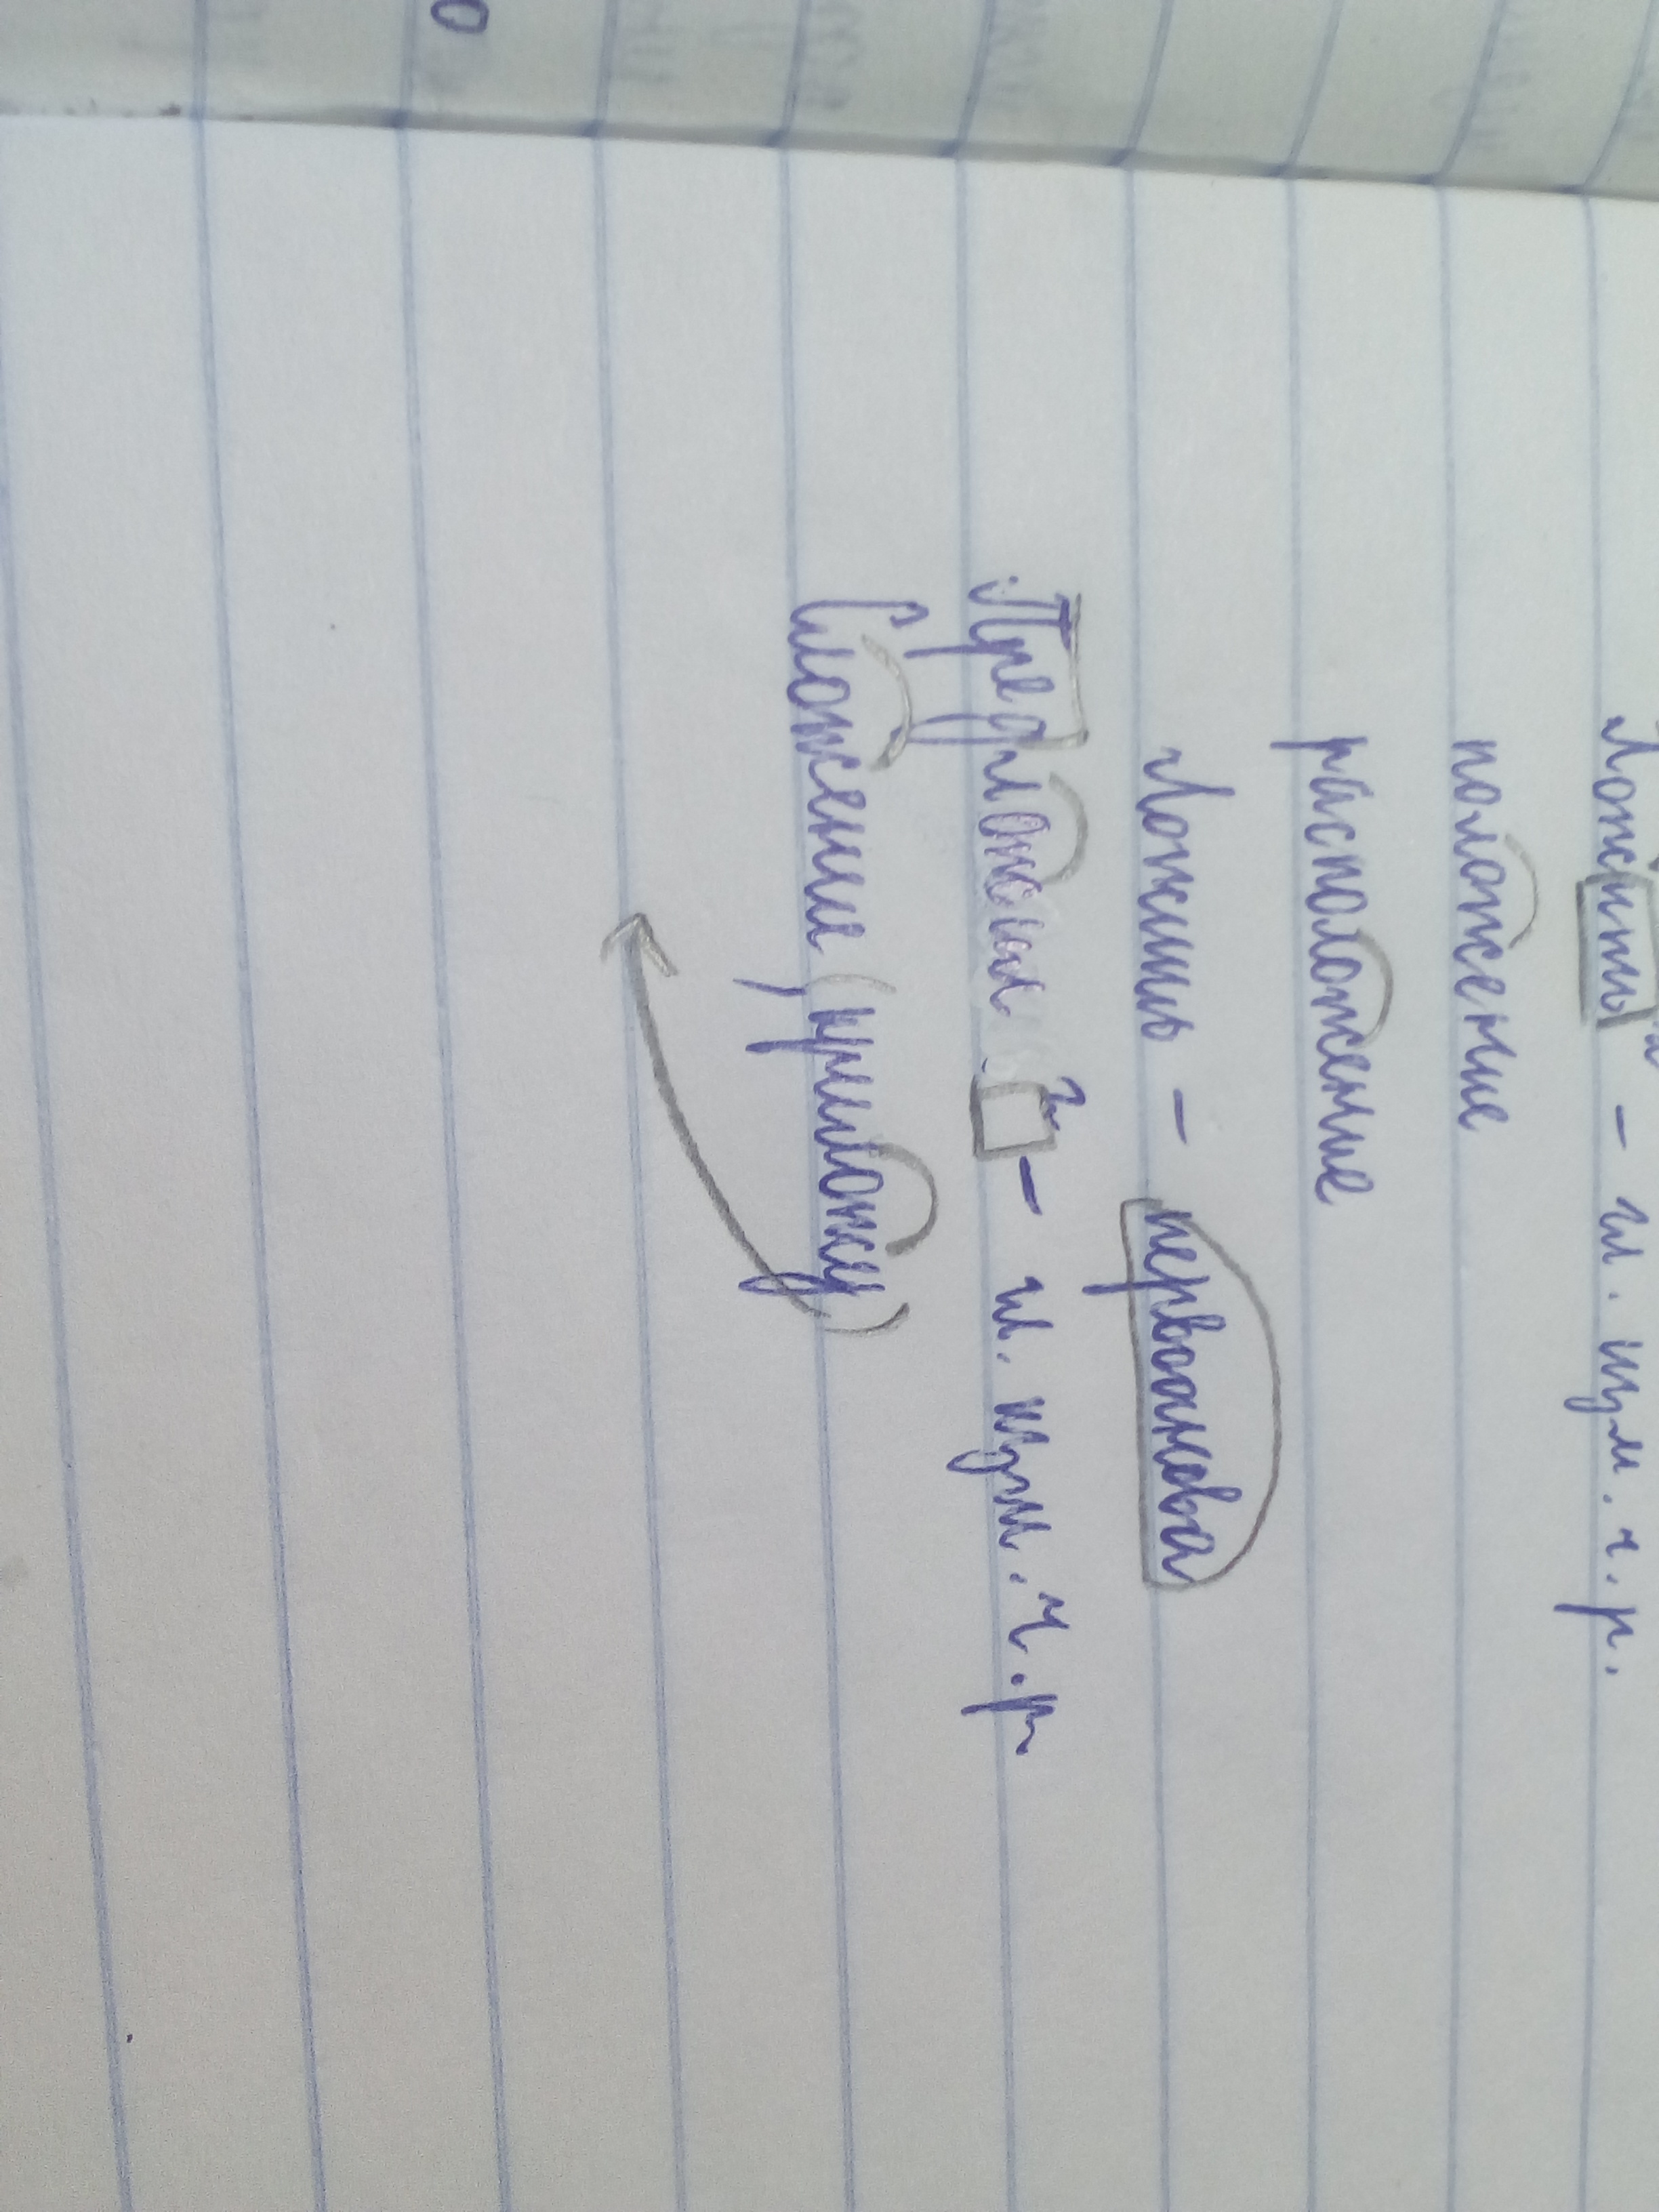 Ложить² – гл. изм. ч. р.
положение
расположение
Ложишь – первооснова
Предложил ³ – гл. изм. ч. р
Сложение (приложу)